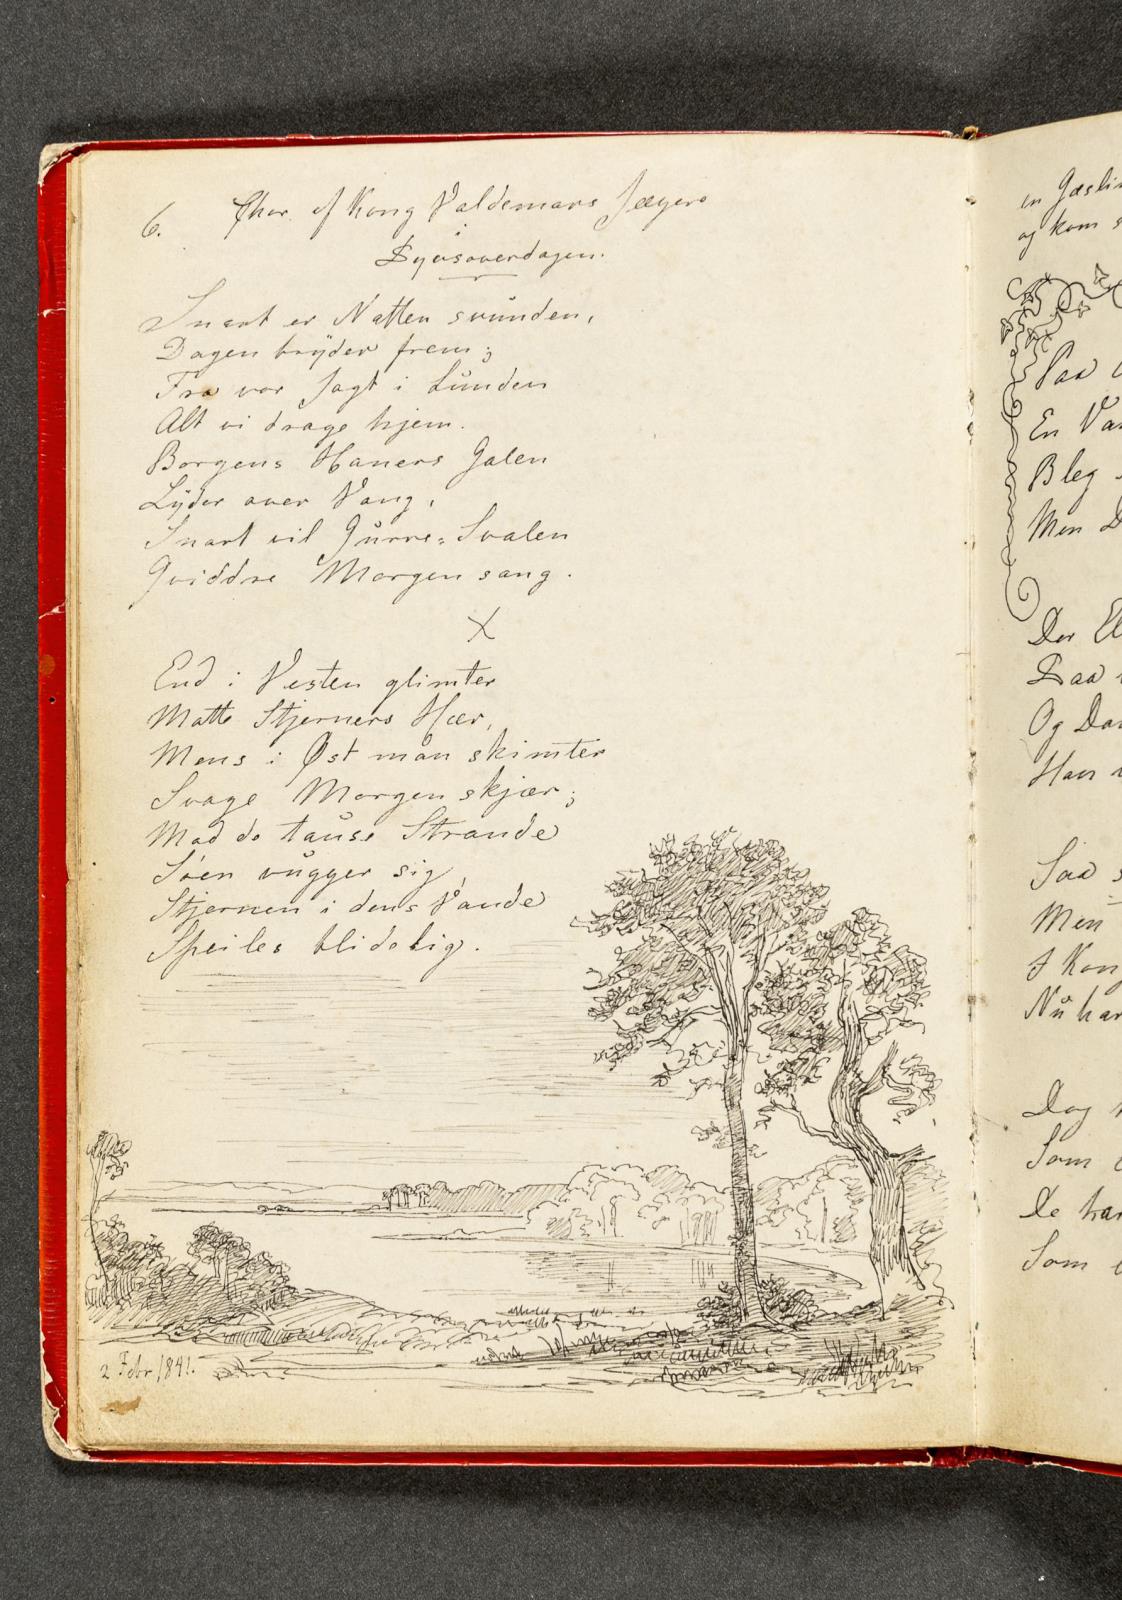 6. Chor af Kong Valdemars Jægere
Syvsoverdagen.
Snart er Natten svunden,
Dagen bryder frem;
Fra vor Jagt i Lunden
Alt vi drage hjem.
Borgens Haners Galen
Lyder over Vang,
Snart vil Gurre-Svalen
Qviddre Morgensang.
X
End i Vesten glimter
Matte Stjerners Hær,
Mens i Øst man skimter
Svage Morgenskjær;
Mod de tause Strande
Søen vugger sig,
Stjernen i dens Vande
Speiles blidelig.
2 Febr 1841.
en
og kom
Paa
En
Bleg
Men
Der
Saa
Og
Han
Saa
Men
I
Nu har
Dog
Som
De har
Som